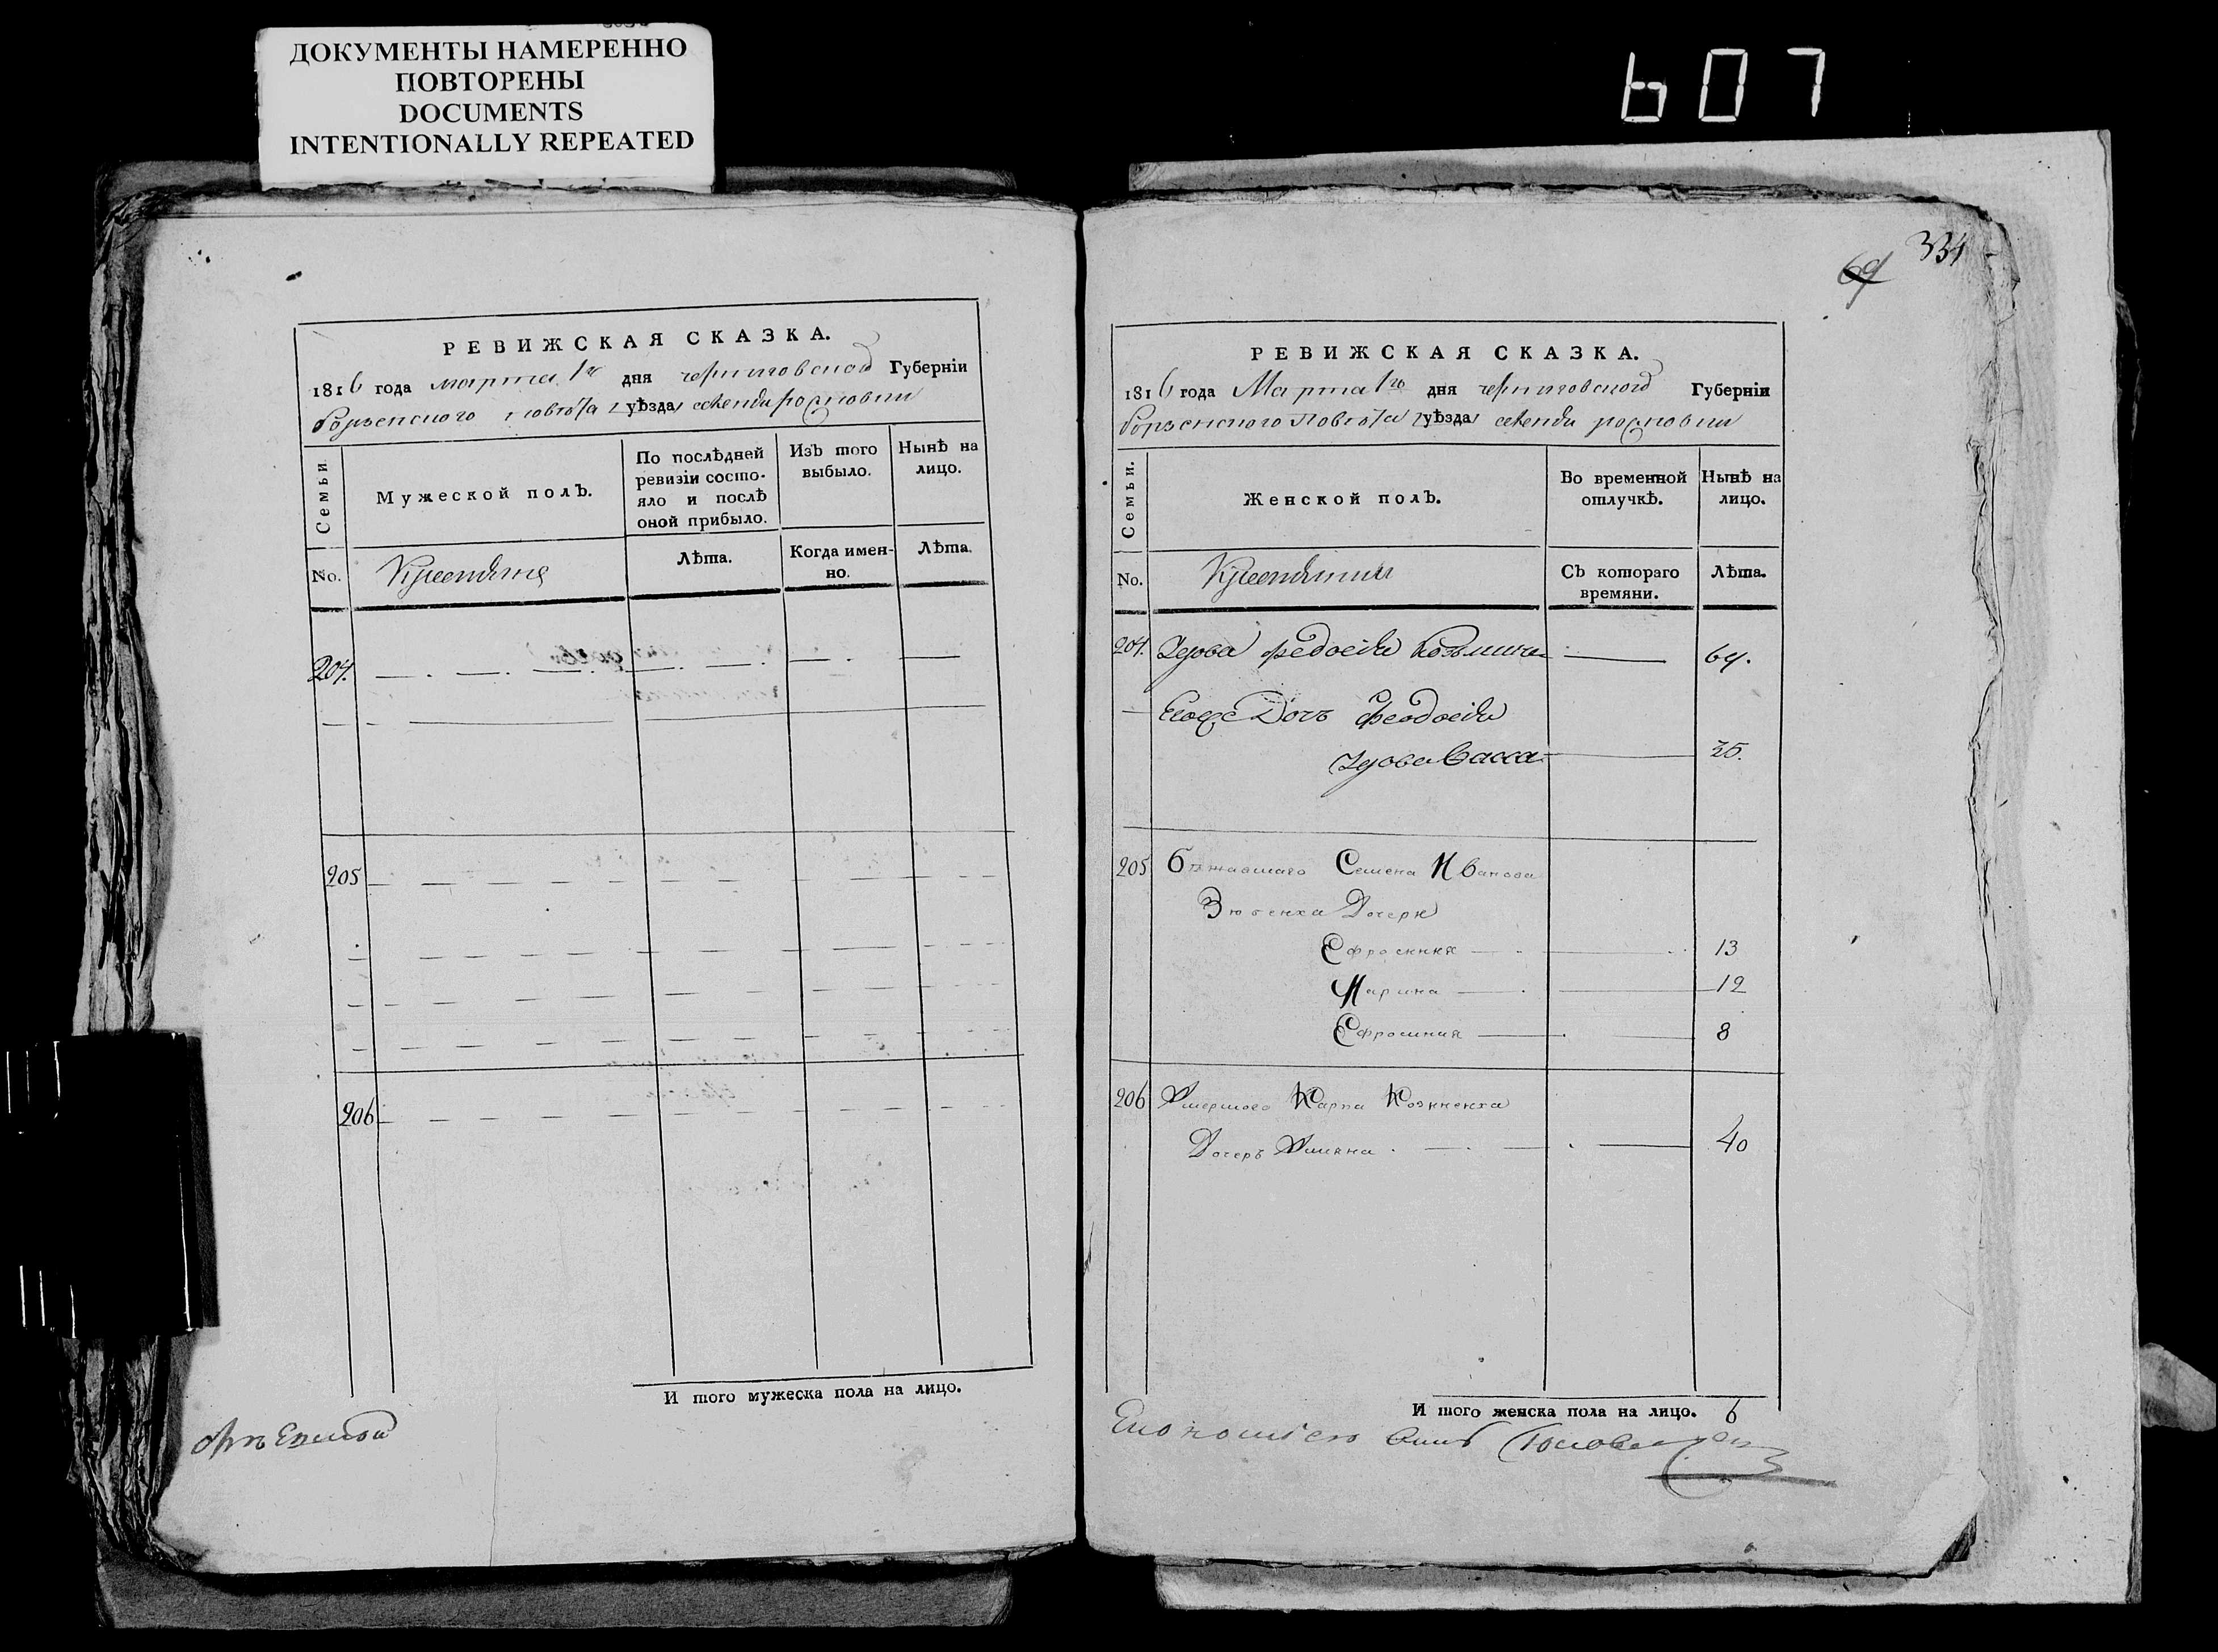 ДОКУМЕНТЫ НАМЕРЕННО
ПОВТОРЕНЫ
DOCUMENTS
INTENTIONALLY REPEATED
607
РЕВИЖСКАЯ СКАЗКА.
1816 года марта 1го дня черниговской Губерніи
Борзенского повѣта уѣзда
Семьи.
Мужеской полъ.
По послѣдней
ревизіи состо-
яло и послѣ
оной прибыло.
Изъ того
выбыло.
Нынѣ на
лицо.
No.
Крестяне
Лѣта.
Когда имен-
но.
Лѣта.
204.
205
206
И того мужеска пола на лицо.
334
69
РЕВИЖСКАЯ СКАЗКА.
1816 года Марта 1го дня черниговской Губерніи
Борзенского Повѣта уѣзда
Семьи.
Женской полъ.
Во временной
отлучкѣ.
Нынѣ на
лицо.
No.
Крестянки
Съ котораго
времяни.
Лѣта.
204. Вдова федосія 69.
Доч Феодосія
Вдова Васса 35.
205 Бѣжавшаго Семена Иванова
Дочери
Ефросиния 13
Марина 12
Ефросиния 8
206 Умершого Карпа
Дочеръ Уляна 40
И того женска пола на лицо. 6